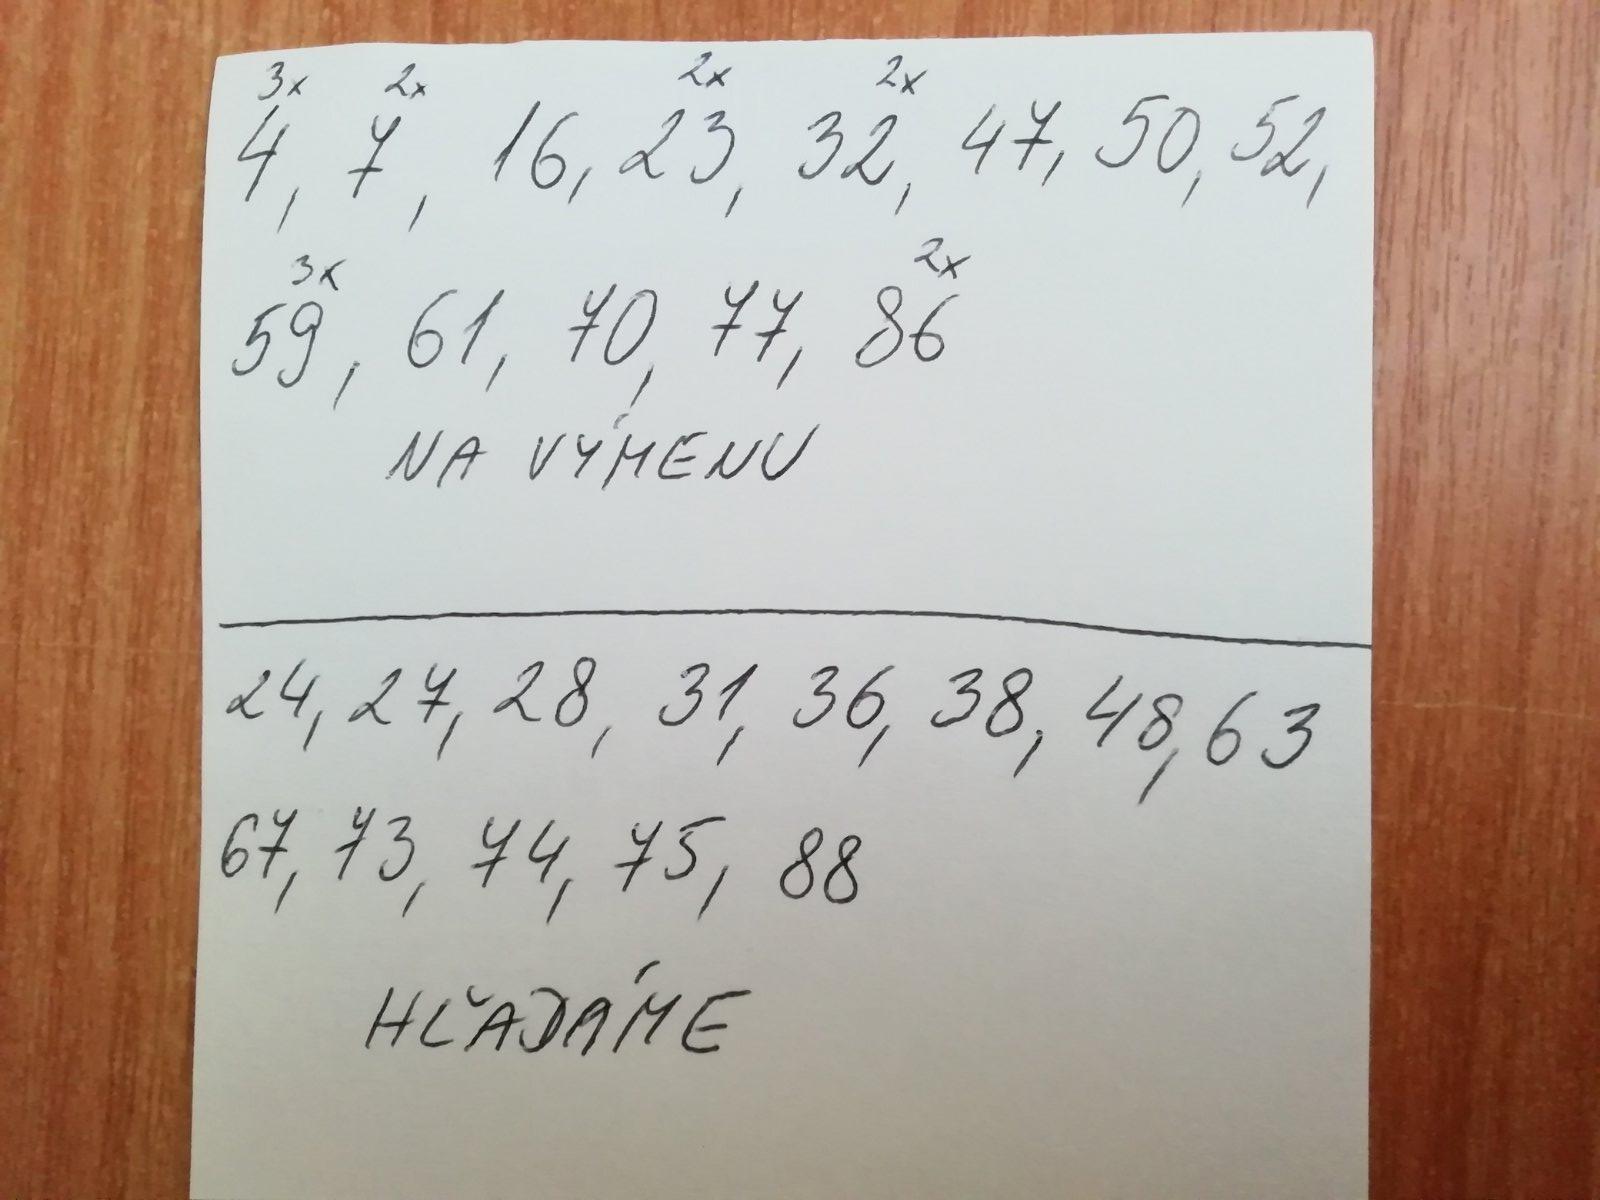 3x 2x 2x 2x
4, 7, 16, 23, 32, 47, 50, 52,
3x 2x
59, 61, 70, 77, 86
NA VÝMENU
24, 27, 28, 31, 36, 38, 48, 63
67, 73, 74, 75, 88
HĽADÁME